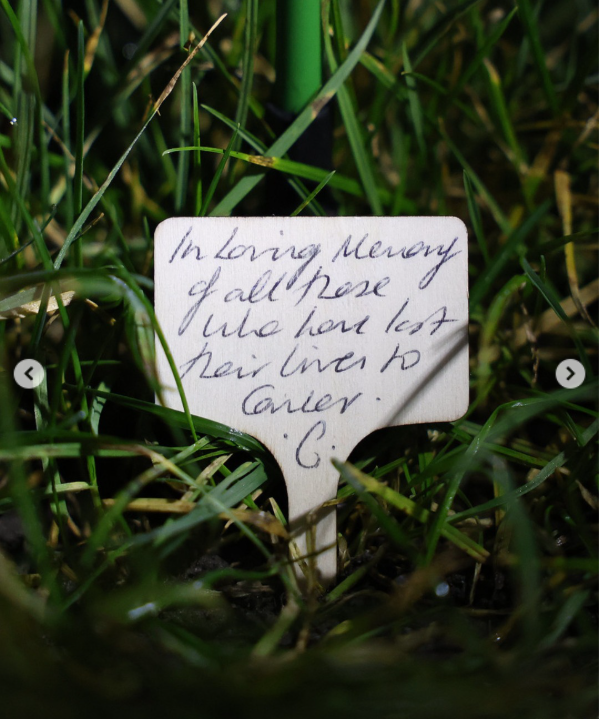 In Loving Memory
of all those
who have lost
their lives to
Cancer.
.C.